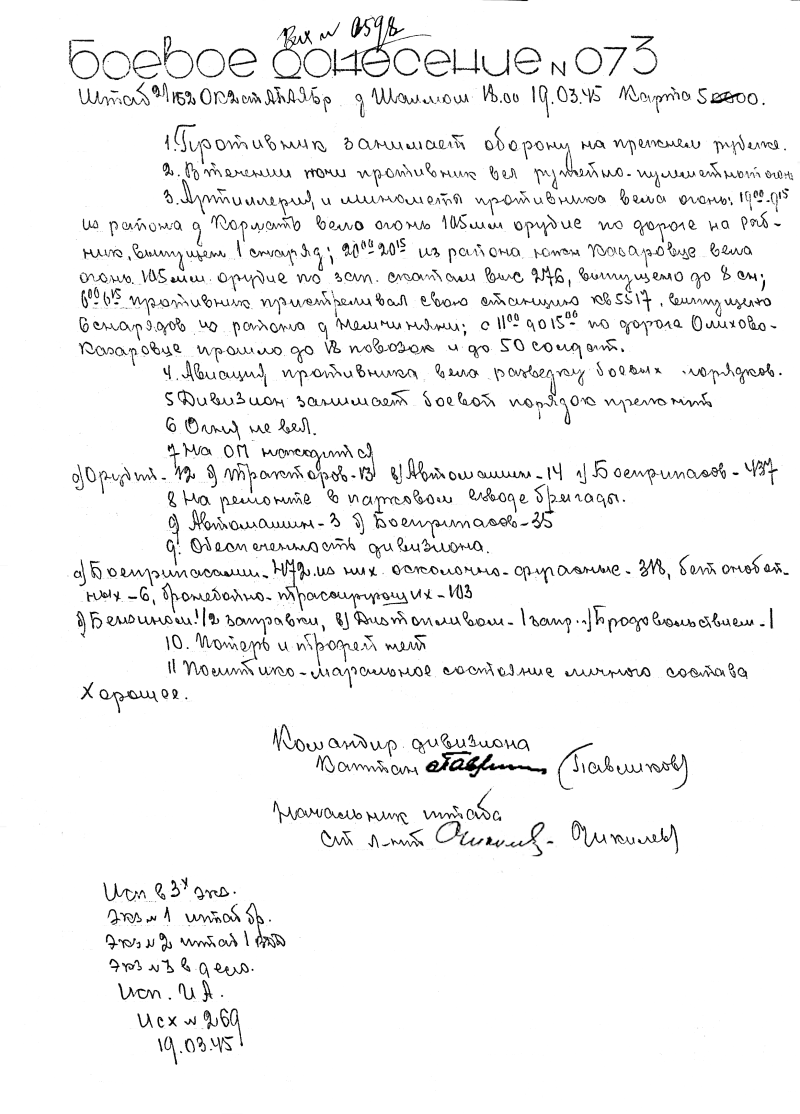 Вх № 0598
Боевое донесение № 073
Штаб 2/152 д Шаллош 18.00 19.03.45 Карта 50000.
1. Противник занимает оборону на прежнем рубеже.
2. В течении ночи противник вел ружейно-пулеметной огонь
3. Артиллерия и минометы противника вела огонь: 19⁰⁰-9¹⁵
из района д Кормать вело огонь 105мм орудие по дороге на Рыб-
ник, выпущен 1 снаряд; 20⁰⁰ 20¹⁵ из района южн Казаровце вела
огонь 105мм. орудие по зап. скатам выс 276, выпущено до 8 сн;
6⁰⁰ 6¹⁵ противник пристреливал свою станцию кв 5517, выпущено
6 снарядов из района д Немчиняни; с 11⁰⁰ до 15⁰⁰ по дороге Олихово-
Казаровце прошло до 18 повозок и до 50 солдат.
4. Авиация противника вела разведку боевых порядков.
5 Дивизион занимает боевой порядок прежний
6 Огня не вел.
7 На ОП находится
а) Орудий - 12 б) Тракторов - 13 в) Автомашин - 14 г) Боеприпасов - 437
8 На ремонте в парковом взводе бригады.
а) Автомашин - 3 б) Боеприпасов - 35
9. Обеспеченность дивизиона.
а) Боеприпасами - 472 из них осколочно-фугасные - 318, бетонобой-
ных - 6, бронебойно-трассирующих - 103
б) Бензином 1/2 заправки, в) Дизтопливом - 1 запр. г) Продовольствием - 1
10. Потерь и трофей нет
11 Политико-маральное состояние личного состава
Хорошее.
Командир дивизиона
Капитан (Павликов)
Начальник штаба
Ст л-нт Чикилев)
Исп в 3ˣ экз.
Экз № 1 штаб бр.
Экз № 2 штаб 1
Экз № 3 в дело.
Исп. И А.
Исх № 269
19.03.45